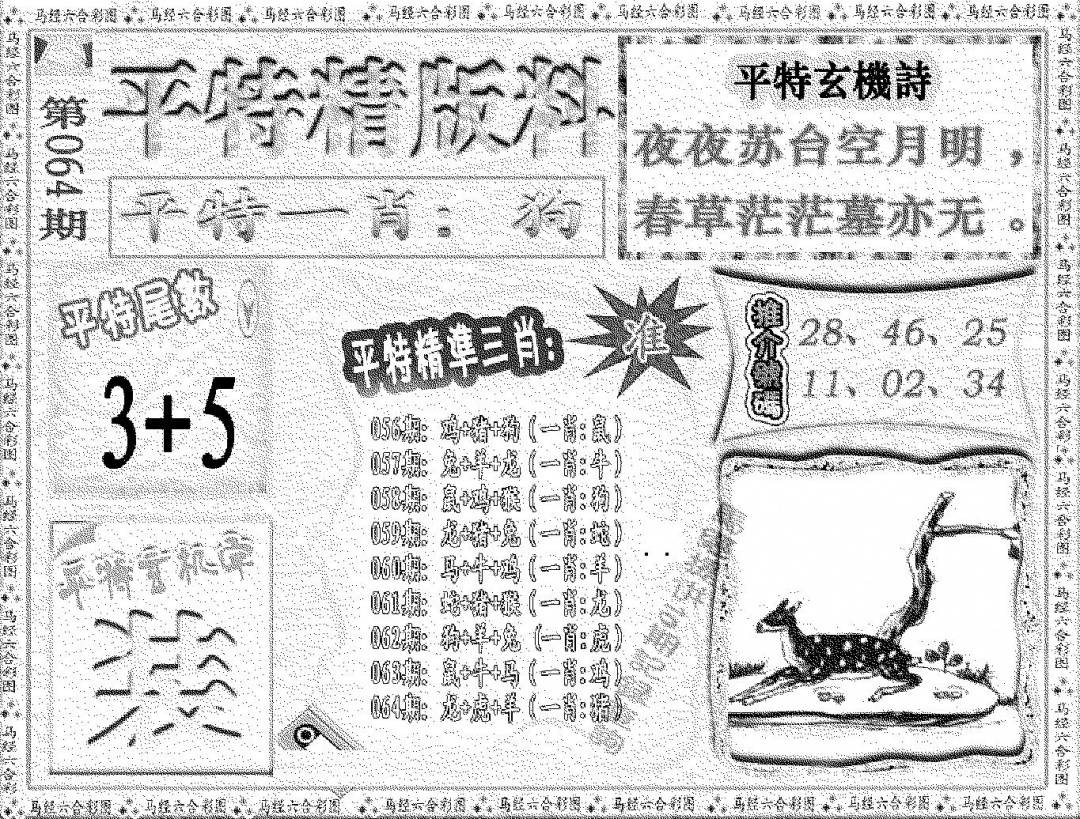 马经六合彩图 马经六合彩图 马经六合彩图 马经六合彩图 马经六合彩图 马经六合彩图 马经六合彩图 马经六合彩图 马经六合彩图
第064期
平特精版料
平特一肖：狗
平特玄機詩
夜夜苏台空月明，
春草茫茫墓亦无。
平特尾数
3+5
平特精準三肖:
准
推介號碼
28、46、25
11、02、34
056期: 鸡+猪+狗(一肖:鼠)
057期: 兔+羊+龙(一肖:牛)
058期: 鼠+鸡+猴(一肖:狗)
059期: 龙+猪+兔(一肖:蛇)
060期: 马+牛+鸡(一肖:羊)
061期: 蛇+猪+猴(一肖:龙)
062期: 狗+羊+兔(一肖:虎)
063期: 鼠+牛+马(一肖:鸡)
064期: 龙+虎+羊(一肖:猪)
平特玄机字
装
马经六合彩图 马经六合彩图 马经六合彩图 马经六合彩图 马经六合彩图 马经六合彩图 马经六合彩图 马经六合彩图 马经六合彩图